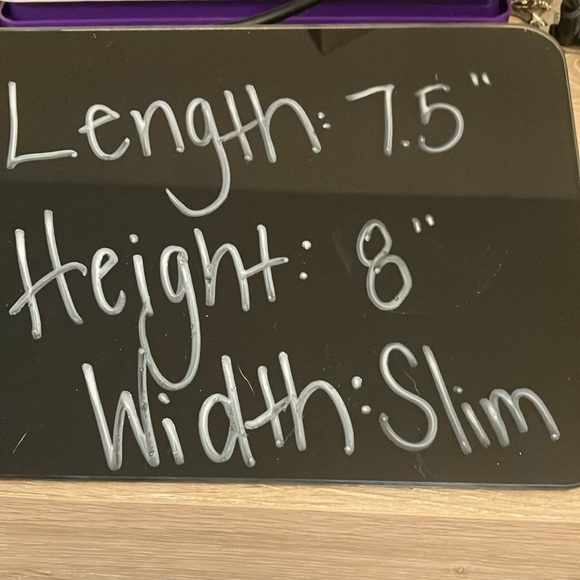 Length: 7.5"
Height: 8"
Width: Slim